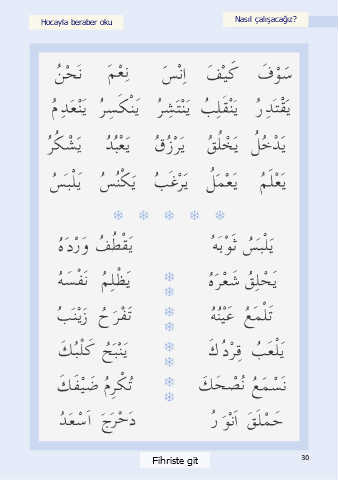 Hocayla beraber oku
Nasıl çalışacağız?
سَوْفَ كَيْفَ اِنْسَ نِعْمَ نَحْنُ
يَقْتَدِرُ يَنْقَلِبُ يَنْتَشِرُ يَنْكَسِرُ يَنْعَدِمُ
يَدْخُلُ يَخْلُقُ يَرْزُقُ يَعْبُدُ يَشْكُرُ
يَعْلَمُ يَعْمَلُ يَرْغَبُ يَكْنُسُ يَلْبَسُ
يَلْبَسُ ثَوْبَهُ يَقْطُفُ وَرْدَهُ
يَحْلِقُ شَعْرَهُ يَظْلِمُ نَفْسَهُ
تَلْمَعُ عَيْنُهُ تَفْرَحُ زَيْنَبُ
يَلْعَبُ قِرْدُكَ يَنْبَحُ كَلْبُكَ
نَسْمَعُ نُصْحَكَ تُكْرِمُ ضَيْفَكَ
حَمْلَقَ اَنْوَرُ دَحْرَجَ اَسْعَدُ
Fihriste git
30